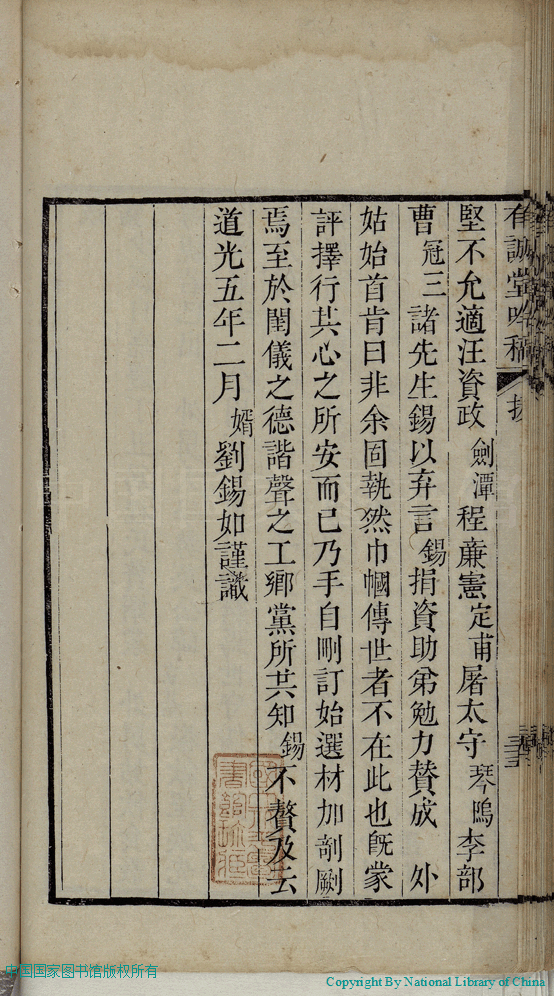 有誠堂吟稿
堅不允適汪資政劍潭程亷憲定甫屠太守琴鳴李部
曹冠三諸先生錫以弃言錫捐資助弟勉力賛成外
姑始首肯曰非余固執然巾幗傳世者不在此也旣蒙
評擇行其心之所安而已乃手自刪訂始選材加剞劂
焉至於閨儀之德諧聲之工鄉黨所共知錫不贅及云
道光五年二月婿劉錫如謹識
中国国家图书馆版权所有
Copyright By National Library of China